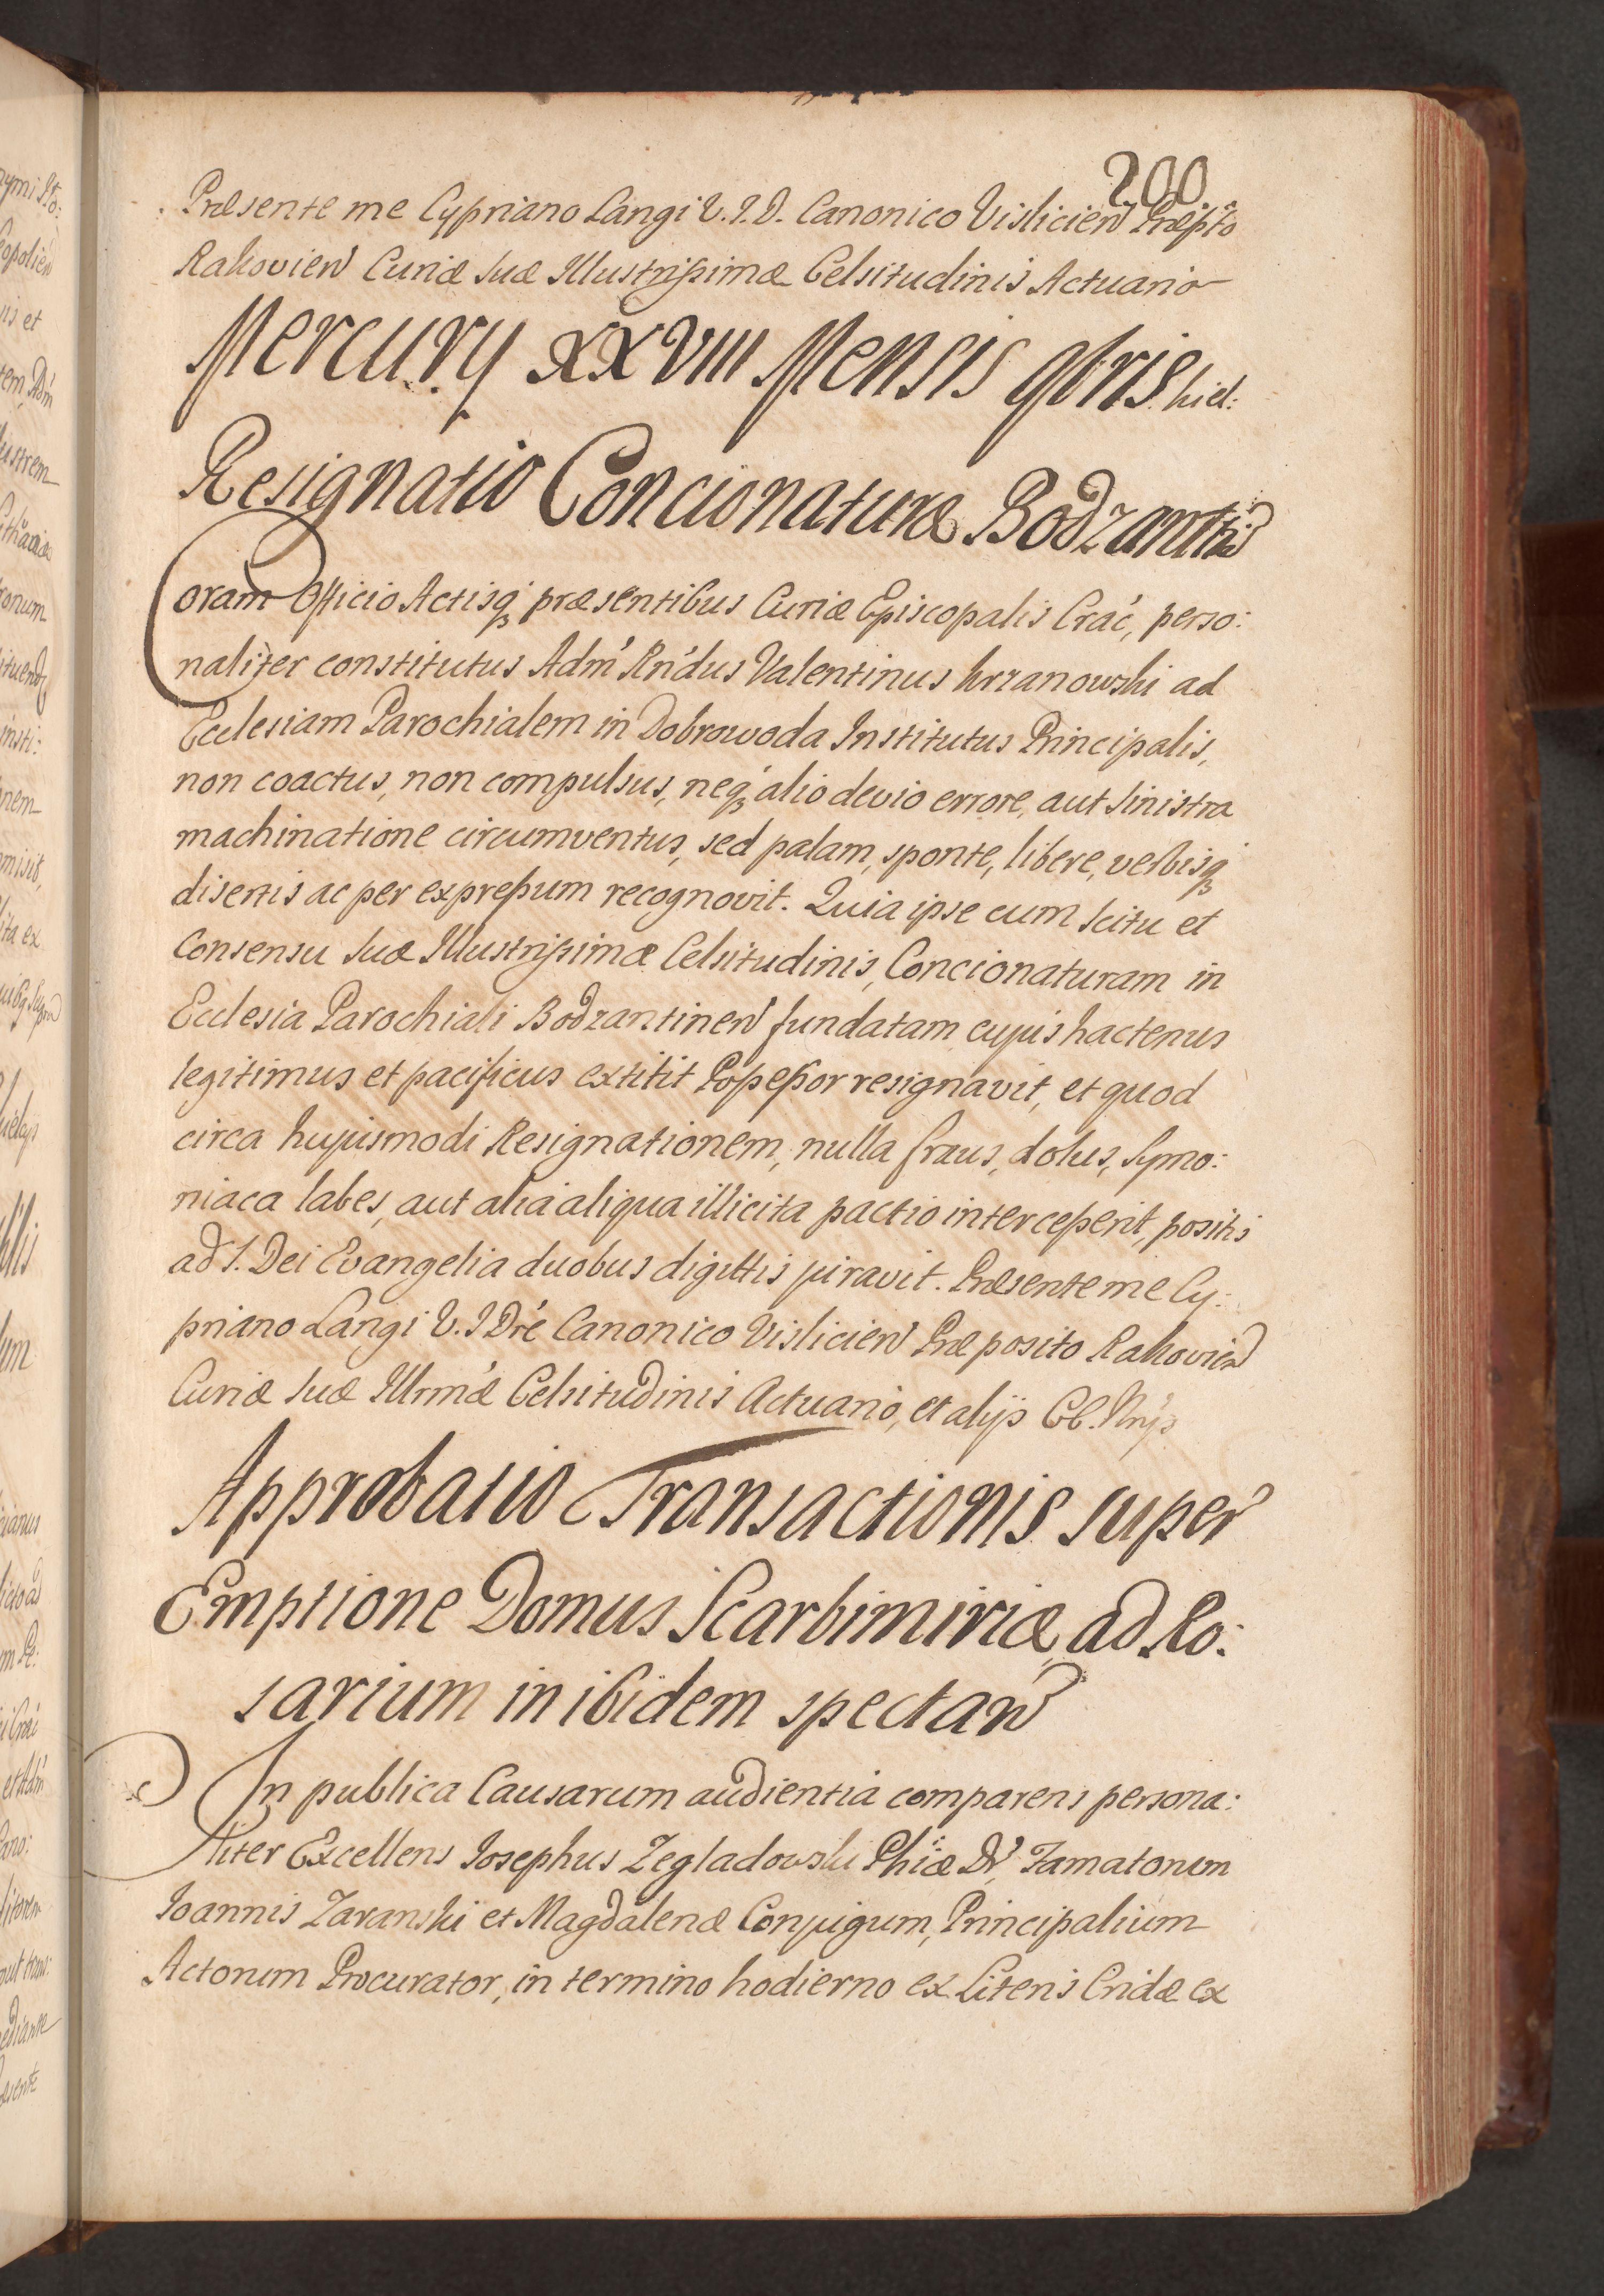 200
Præsente me Cypriano Langi V. I. D. Canonico Vislicieñ Præpto
Rakovieñ Curiæ suæ Illustrissimæ Celsitudinis Actuario
Mercury XXVIII Mensis 9bris. kiel:
Resignatio Concionaturæ Bodzantiñ
Coram Officio Actisq præsentibus Curiæ Episcopalis Crac, perso:
naliter constitutus Adm Rndus Valentinus krzanowski ad
Ecclesiam Parochialem in Dobrowoda Institutus Principalis,
non coactus, non compulsus, neq alio devio errore, aut sinistra
machinatione circumventus, sed palam, sponte, libere, verbisq
disertis ac per expressum recognovit. Quia ipse cum scitu et
Consensu suæ Illustrissimæ Celsitudinis, Concionaturam in
Ecclesia Parochiali Bodzantineñ fundatam cujus hactenus
legitimus et pacificus extitit Possessor resignavit, et quod
circa hujusmodi Resignationem, nulla fraus, dolus, Symo:
niaca labes, aut alia aliqua illicita pactio intercesserit, positis
ad S. Dei Evangelia duobus digittis juravit. Præsente me Cy:
priano Langi V. I Dre Canonico Vislicieñ Præposito Rakovieñ
Curiæ suæ Illrmæ Celsitudinis Actuario, et alijs
Approbatio Transactionis super
Emptione Domus Scarbimiriæ ad Ro:
sarium inibidem spectañ
In publica Causarum audientia comparens persona:
liter Excellens Iosephus Zegladowski Phiæ Dr, Famatorum
Ioannis Zaranski et Magdalenæ Conjugum, Principalium
Actorum Procurator, in termino hodierno ex Literis Cridæ ex